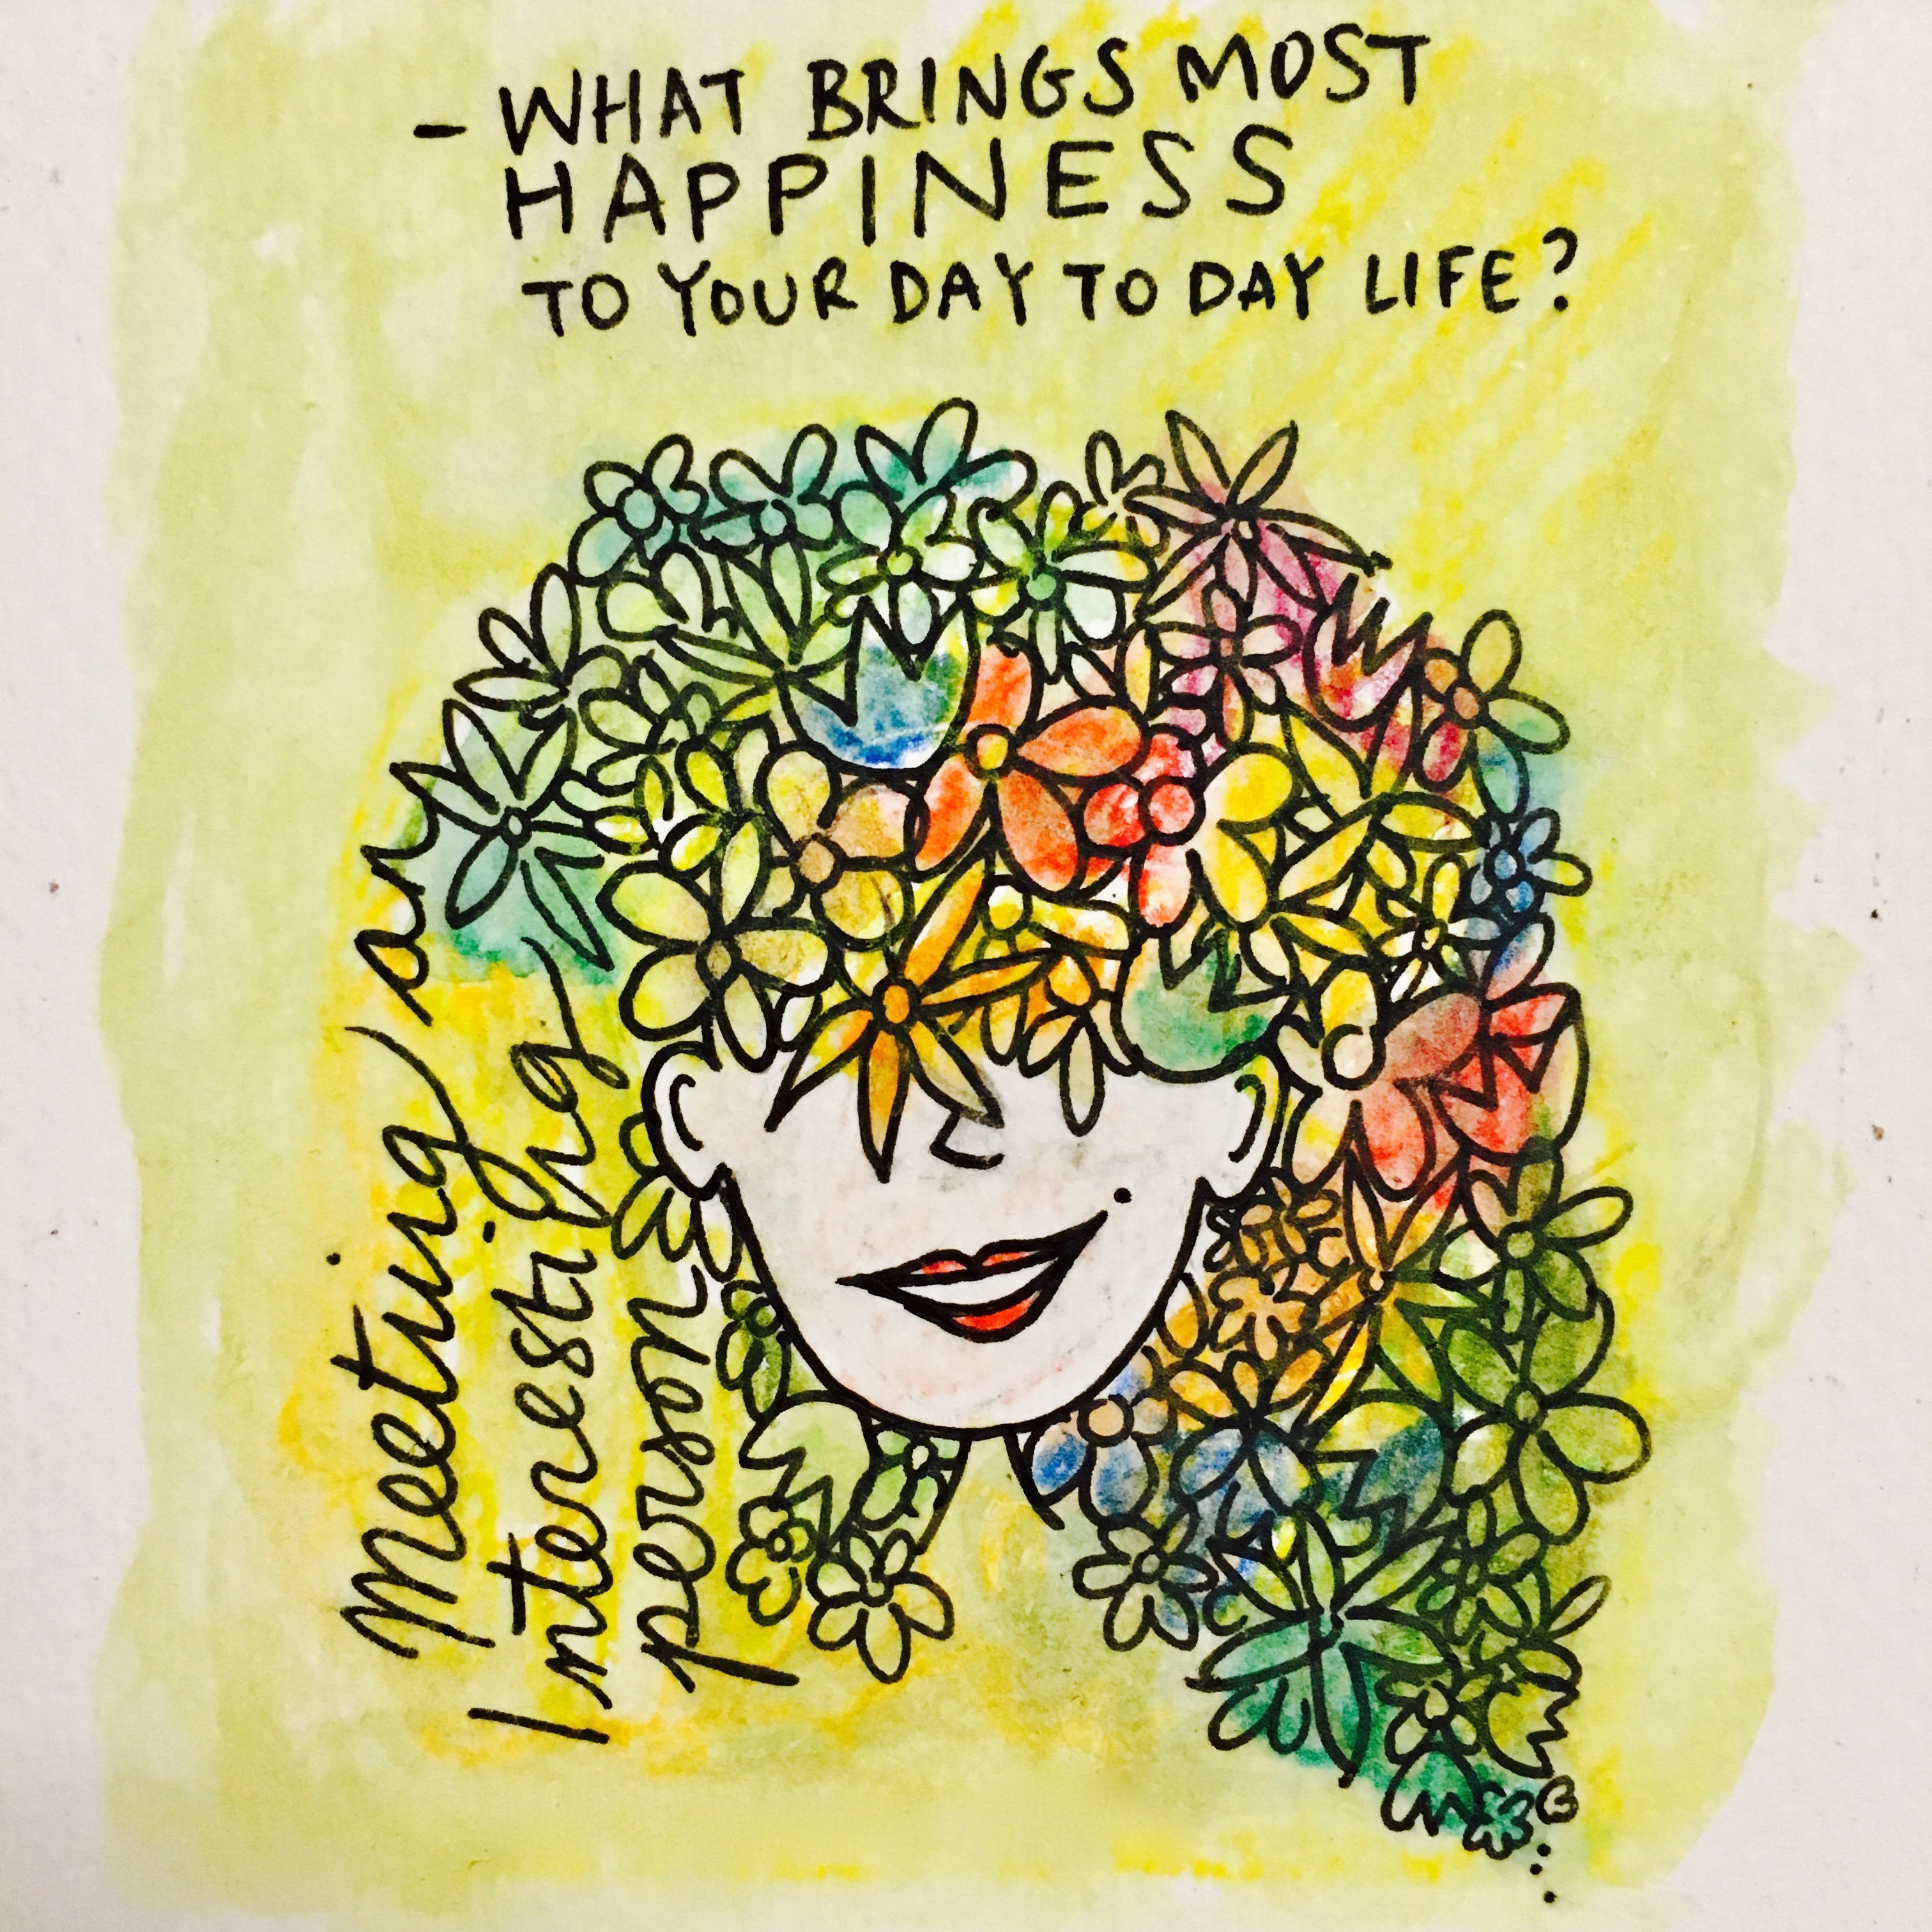 - WHAT BRINGS MOST
HAPPINESS
TO YOUR DAY TO DAY LIFE?
Meeting an
Interesting
person